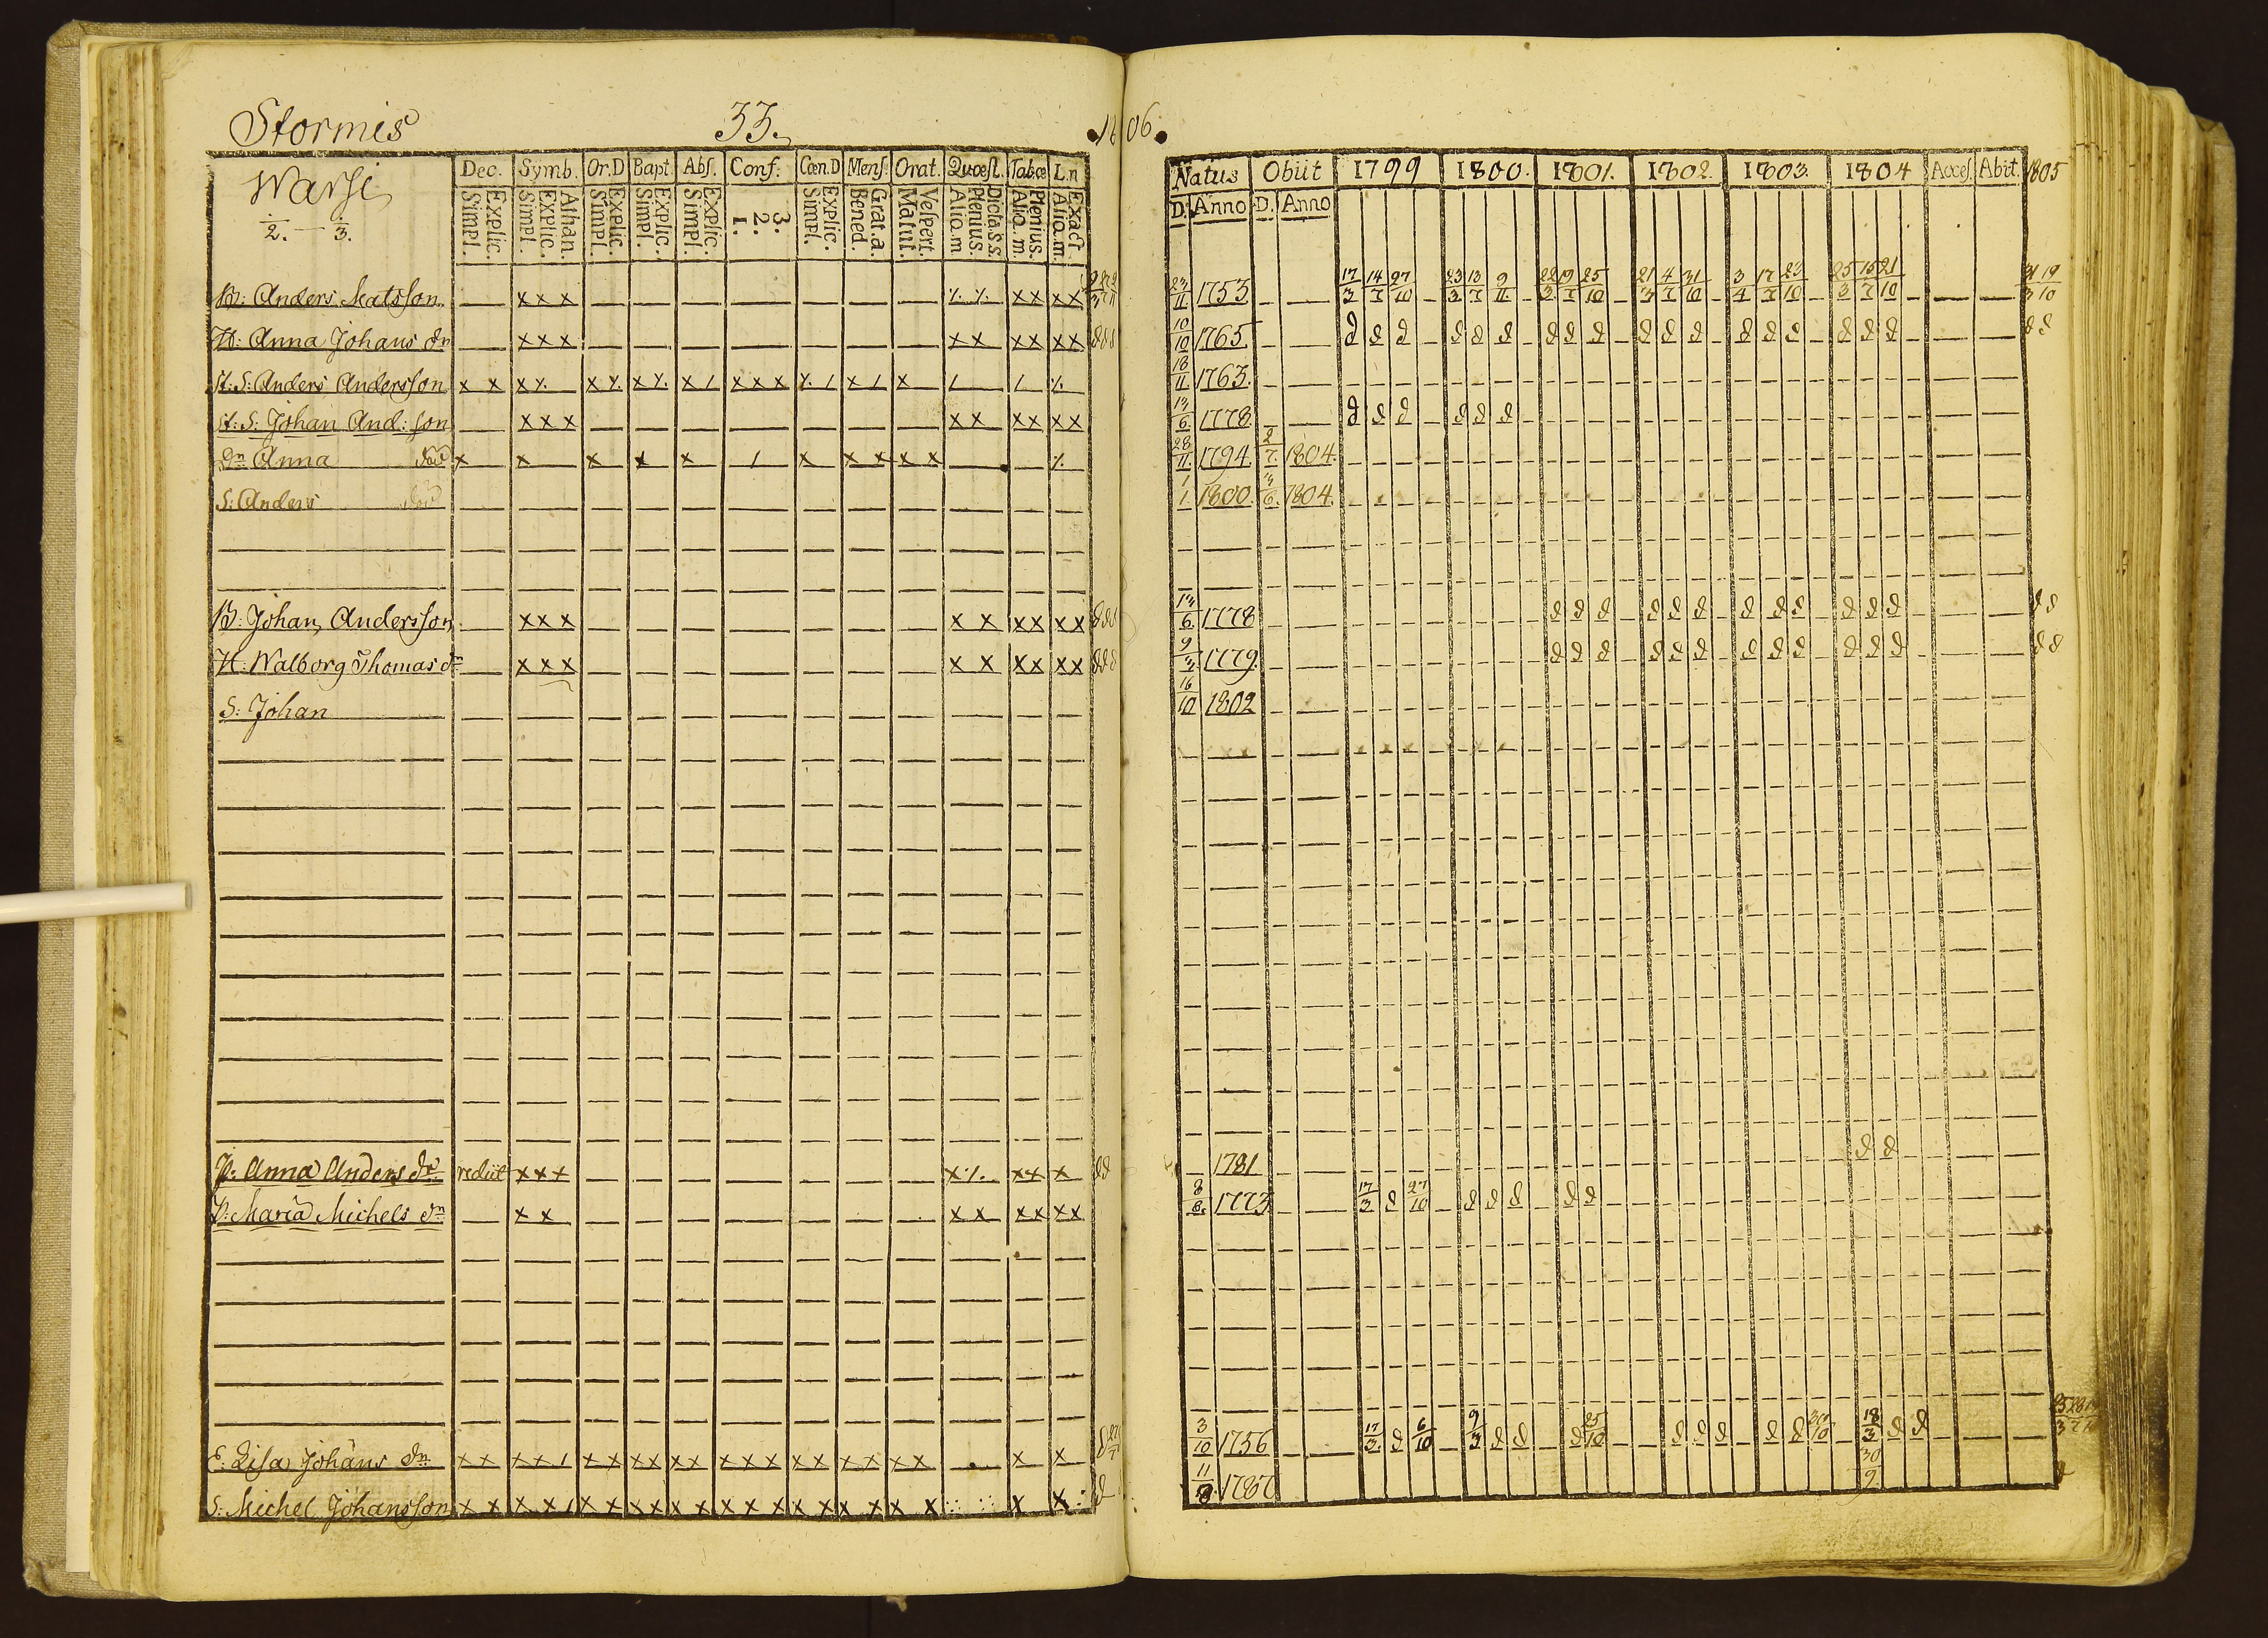 Stormis 33. 1806.
Warse
2. — 3.
Dec. Symb. Or.D Bapt. Abs. Conf. Cœn.D Mens. Orat. Quœst. Tabœ L.n
Simpl. Explic. Simpl. Explic. Athan. Simpl. Explic. Simpl. Explic. Simpl. Explic. 1. 2. 3. Simpl. Explic. Bened. Grat.a. Matut. Vespert. Alio.m Plenius. Dicta.s.s. Alio.m. Plenius. Alio.m. Exact
Natus Obiit 1799 1800. 1801. 1802. 1803. 1804 Acces. Abit. 1805
D. Anno D. Anno
B: Anders Matsson x x x ٪ ٪ x x x x 23/11 1753 17/3 14/7 27/10 23/3 13/7 9/11 22/3 19/7 25/10 21/3 4/7 31/10 3/4 17/7 23/10 25/3 15/7 21/10 31/3 19/10
H: Anna Johans dn x x x x x x x x x 10/10 1765
St. S: Anders Andersson x x x ٪ x ٪ x ٪ x / x x x ٪ / x / x / / ٪ 18/11 1763.
St: S: Johan And: son x x x x x x x x x 13/6 1778
Dn Anna x x x x x / x x x x x ٪ 28/11 1794 2/7 1804.
S: Anders 1/1 1800. 1804.
B: Johan Andersson x x x x x x x x x 13/6 1778
H: Walborg Thomas dn x x x x x x x x x 9/3 1779
S: Johan 16/10 1802
P: Anna Anders dr rediit x x x x ٪ x x x 1781
P: Maria Michels dn x x x x x x x x 8/8 1773 17/3 27/10
E: Lisa Johans dn x x x x / x x x x x x x x x x x x x x x x x 3/10 1756 17/3 6/10 9/3 25/10 18/3
S: Michel Johansson x x x x / x x x x x x x x x x x x x x x x x 1787 30/9